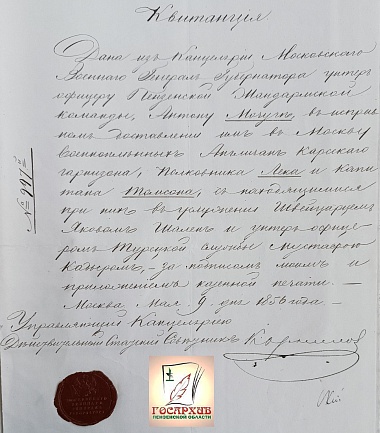 Квитанция.
Дана изъ Канцеляріи Московскаго
Военнаго Генералъ Губернатора унтеръ
офицеру Пензенской Жандармской
команды, Антону Мочугѣ, въ исправ-
номъ доставленіи имъ въ Москву
военноплѣнныхъ Англичанъ Карскаго
гарнизона, Полковника Лека и Капи-
тана Томсона, съ находящимися
при нихъ въ услуженіи Швейцарцемъ
Яковомъ Шаленъ и унтеръ офице-
ромъ Турецкой службы Мустафою
Кадыромъ, – за подписомъ моимъ и
приложеніемъ казенной печати. –
Москва Мая 9 дня 1856 года. –
№ 997й
Управляющій Канцеляріею
Дѣйствительный Статскій Совѣтникъ
ГОСАРХИВ
ПЕНЗЕНСКОЙ ОБЛАСТИ